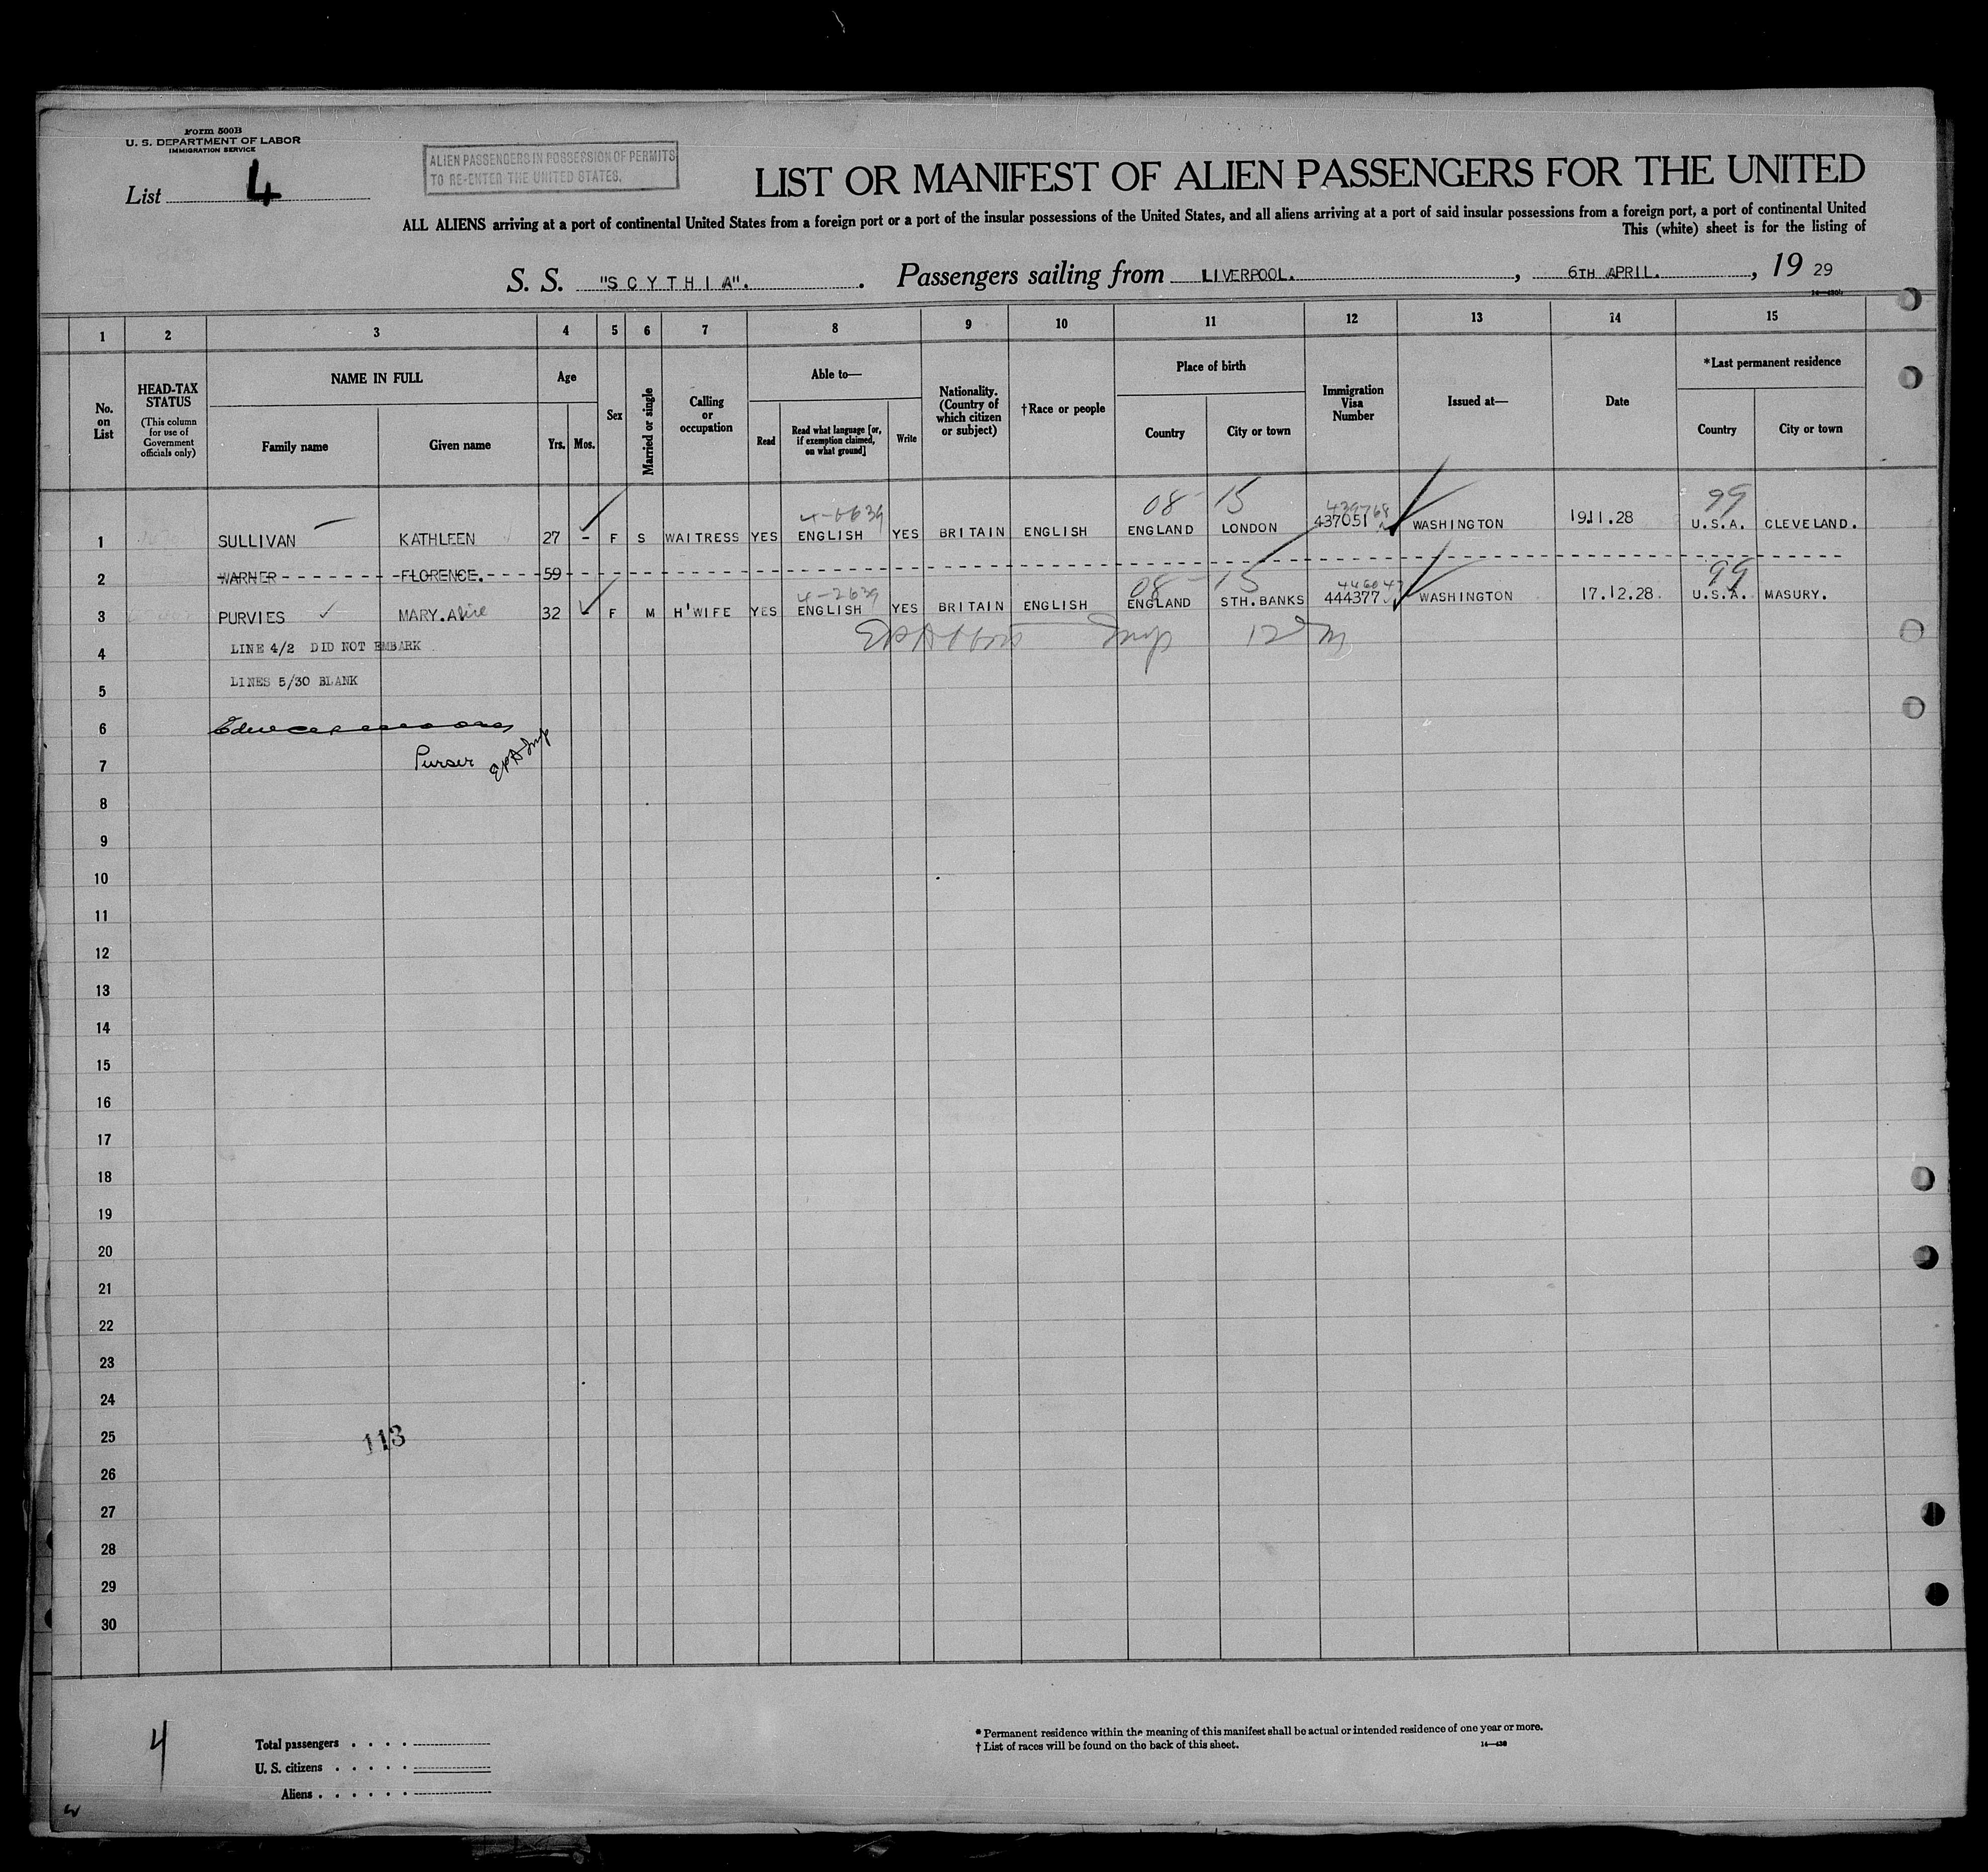 Form 500B
U. S. DEPARTMENT OF LABOR
IMMIGRATION SERVICE
List 4
ALIEN PASSENGERS IN POSSESSION OF PERMITS
TO RE-ENTER THE UNITED STATES.
LIST OR MANIFEST OF ALIEN PASSENGERS FOR THE UNITED
ALL ALIENS arriving at a port of continental United States from a foreign port or a port of the insular possessions of the United States, and all aliens arriving at a port of said insular possessions from a foreign port, a port of continental United
This (white) sheet is for the listing of
S. S. "SCYTHIA". Passengers sailing from LIVERPOOL. , 6TH APRIL. , 19 29
1 2 3 4 5 6 7 8 9 10 11 12 13 14 15
No. on List
HEAD-TAX STATUS
(This column for use of Government officials only)
NAME IN FULL
Family name Given name
Age
Yrs. Mos.
Sex
Married or single
Calling or occupation
Able to—
Read
Read what language [or, if exemption claimed, on what ground]
Write
Nationality. (Country of which citizen or subject)
†Race or people
Place of birth
Country City or town
Immigration Visa Number
Issued at—
Date
*Last permanent residence
Country City or town
4-6639 08 15 439768 99
1 SULLIVAN KATHLEEN 27 - F S WAITRESS YES ENGLISH YES BRITAIN ENGLISH ENGLAND LONDON 437051 WASHINGTON 19.11.28 U.S.A. CLEVELAND.
2 WARNER FLORENCE. 59
4-2639 08 15 99
3 PURVIES MARY.Alice 32 - F M H'WIFE YES ENGLISH YES BRITAIN ENGLISH ENGLAND STH.BANKS 444377 WASHINGTON 17.12.28. U.S.A. MASURY.
4 LINE 4/2 DID NOT EMBARK
5 LINES 5/30 BLANK
6
7 Purser
8
9
10
11
12
13
14
15
16
17
18
19
20
21
22
23
24
25 113
26
27
28
29
30
4
Total passengers . . . .
U. S. citizens . . . . .
Aliens . . . . . .
* Permanent residence within the meaning of this manifest shall be actual or intended residence of one year or more.
† List of races will be found on the back of this sheet.